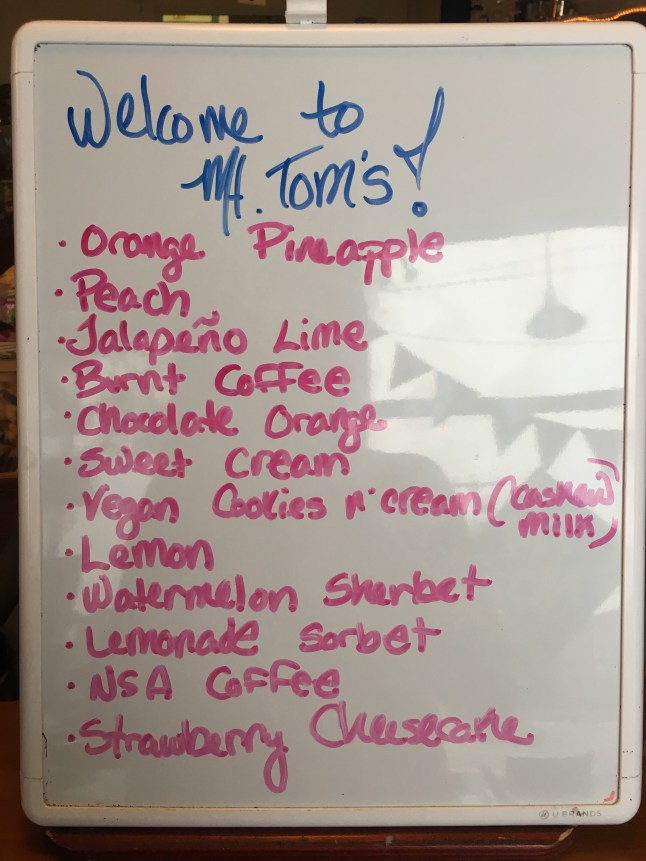 Welcome to
Mt. Tom's!
· Orange Pineapple
· Peach
· Jalapeño Lime
· Burnt Coffee
· Chocolate Orange
· Sweet Cream
· Vegan Cookies n' cream (cashew milk)
· Lemon
· Watermelon Sherbet
· Lemonade Sorbet
· NSA Coffee
· Strawberry Cheesecake
U BRANDS